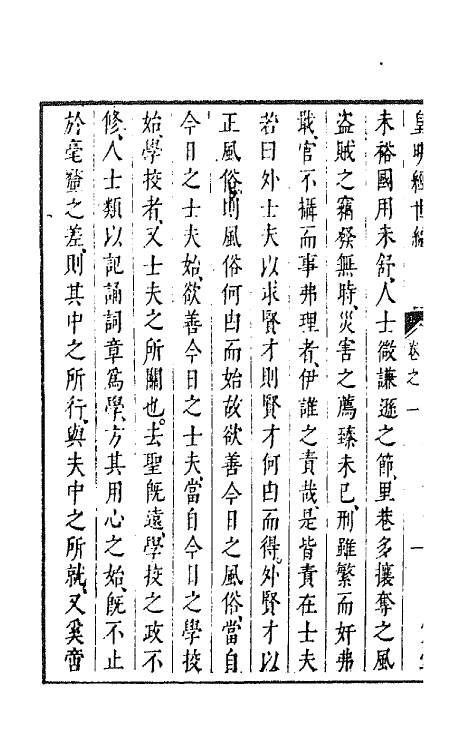 皇明經世編　卷之一　一
未裕國用未舒人士微謙遜之節里巷多攘奪之風
盜賊之竊發無時災害之薦臻未已刑雖繁而奸弗
戢官不攝而事弗理者伊誰之責哉是皆責在士夫
若曰外士夫以求賢才則賢才何由而得外賢才以
正風俗則風俗何由而始故欲善今日之風俗當自
今日之士夫始欲善今日之士夫當自今日之學校
始學校者又士夫之所關也去聖既遠學校之政不
修人士類以記誦詞章爲學方其用心之始既不止
於毫釐之差則其中之所行與夫中之所就又奚啻